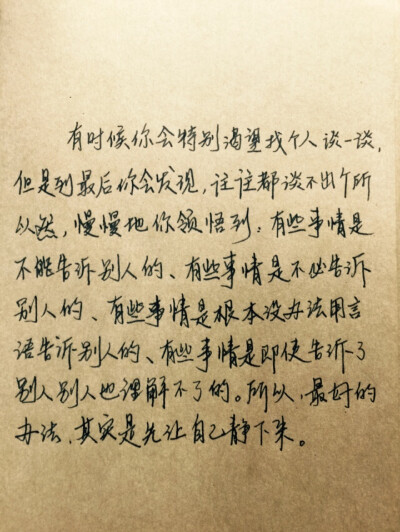 有时候你会特别渴望找个人谈一谈，
但是到最后你会发现，往往都谈不出个所
以然，慢慢地你领悟到：有些事情是
不能告诉别人的、有些事情是不必告诉
别人的、有些事情是根本没办法用言
语告诉别人的、有些事情是即使告诉了
别人别人也理解不了的。所以，最好的
办法，其实是先让自己静下来。